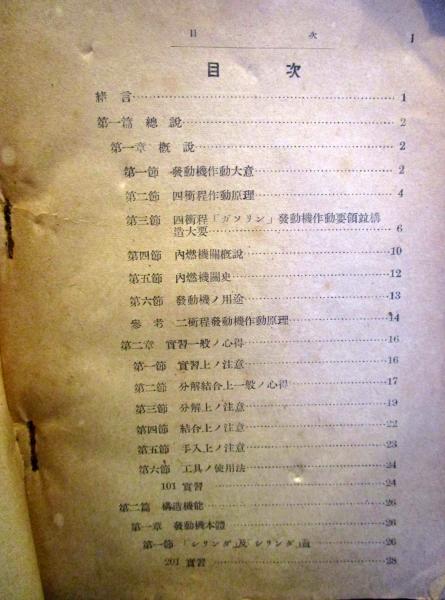 目 次 1
目 次
緖言 1
第一篇 總說 2
第一章 槪說 2
第一節 發動機作動大意 2
第二節 四衝程作動原理 4
第三節 四衝程「ガソリン」發動機作動要領竝構
造大要 6
第四節 內燃機關槪說 10
第五節 內燃機關史 12
第六節 發動機ノ用途 13
參考 二衝程發動機作動原理 14
第二章 實習一般ノ心得 16
第一節 實習上ノ注意 16
第二節 分解結合上一般ノ心得 17
第三節 分解上ノ注意 19
第四節 結合上ノ注意 22
第五節 手入上ノ注意 23
第六節 工具ノ使用法 24
101 實習 24
第二篇 構造機能 26
第一章 發動機本體 26
第一節 「シリンダ」及「シリンダ」蓋 26
201 實習 28